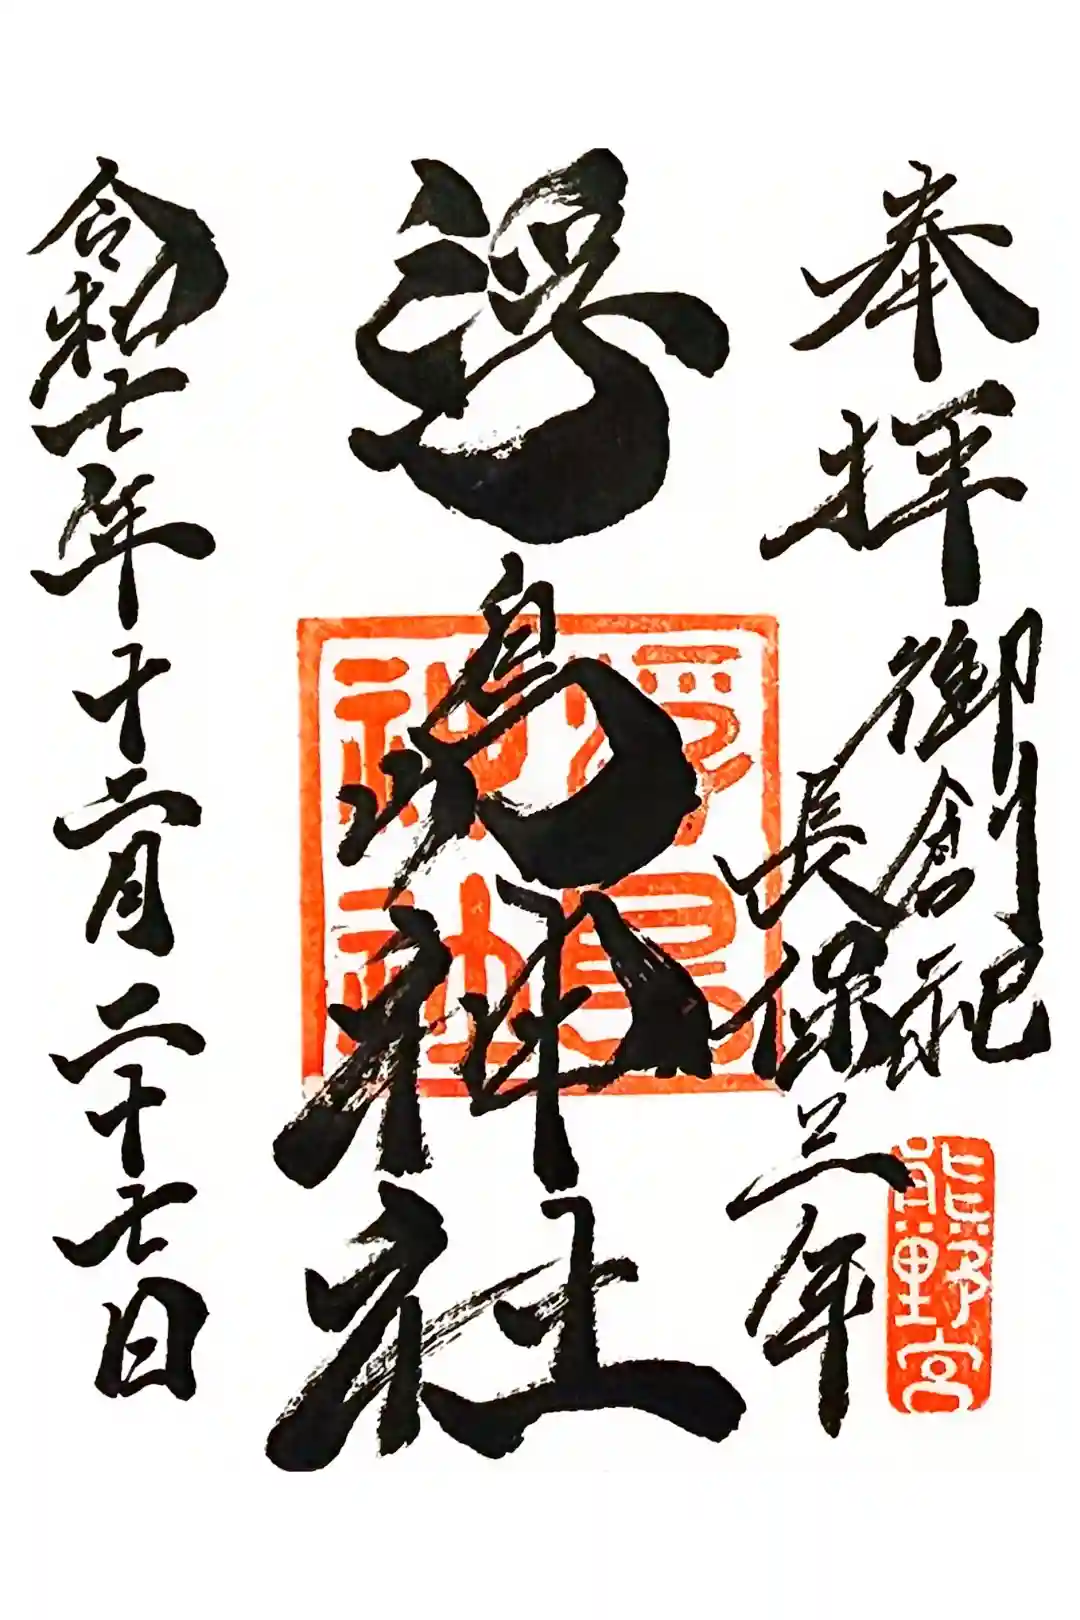 奉拝
御創祀
長保三年
熊野宮
浮嶋神社
浮島神社
令和七年十二月二十七日